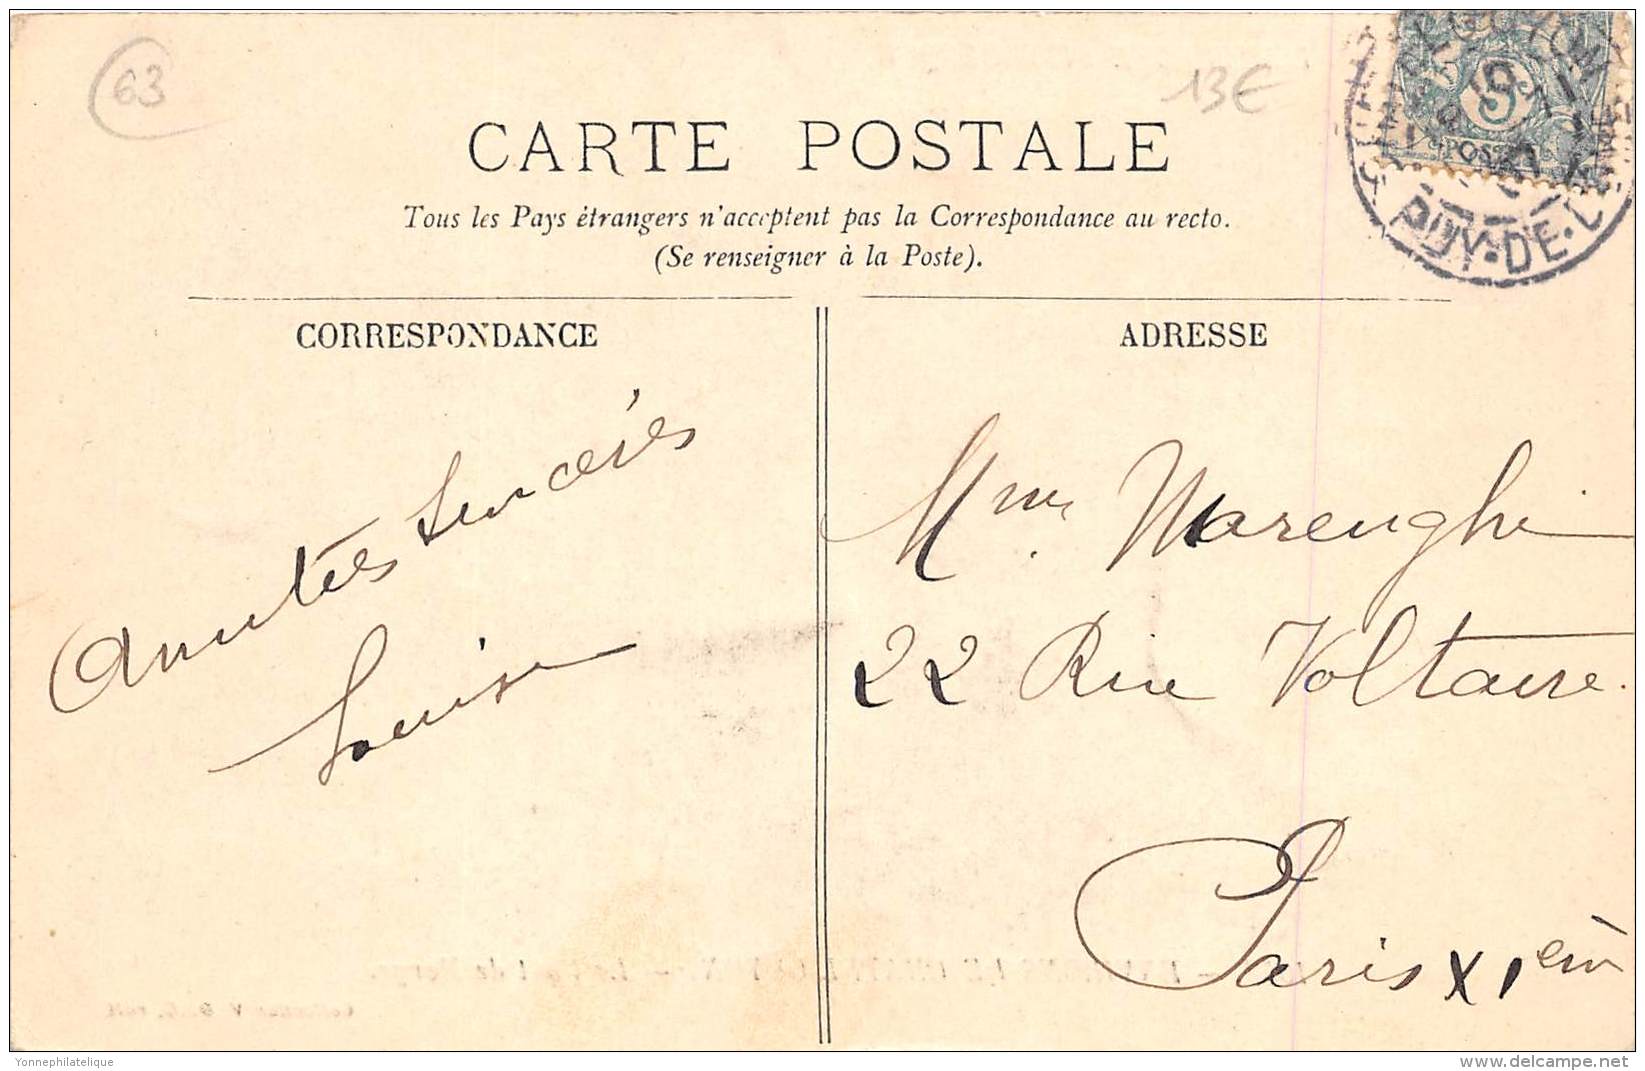 63
13€
CARTE POSTALE
Tous les Pays étrangers n'acceptent pas la Correspondance au recto.
(Se renseigner à la Poste).
CORRESPONDANCE
ADRESSE
Amitiés sincères
Louise
Mme Marenghi
22 Rue Voltaire.
Paris XIème
5
PUY-DE-DOME
Yonnephilatelique
delcampe.net